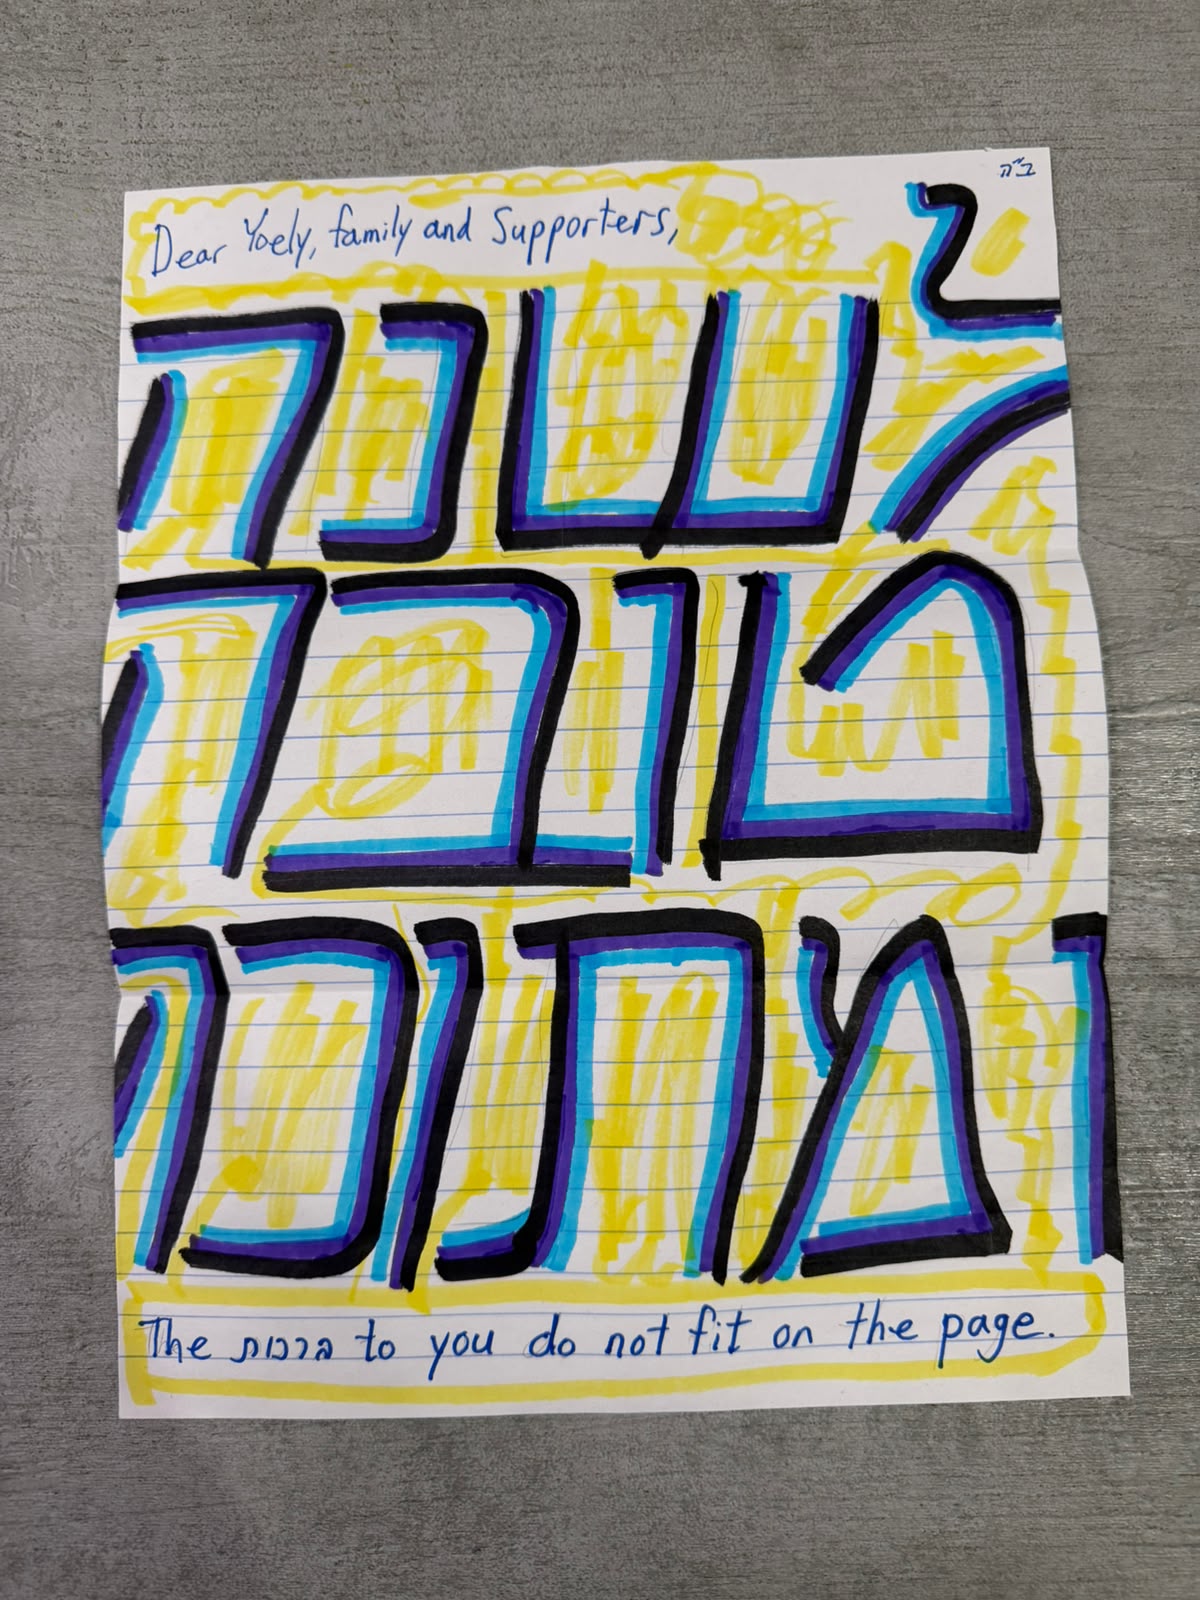 ב"ה
Dear Yoely, family and Supporters,
לשנה
טובה
ומתוכה
The ברכות to you do not fit on the page.